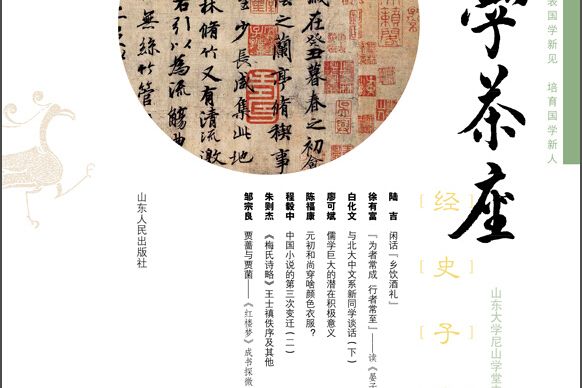 表国学新见 培育国学新人
学茶座
[经]
[史]
[子]
山东大学尼山学堂
陆 吉 闲话「乡饮酒礼」
徐有富 「为者常成 行者常至」——读《晏子
白化文 与北大中文系新同学谈话（下）
廖可斌 儒学巨大的潜在积极意义
陈福康 元初和尚穿啥颜色衣服？
程毅中 中国小说的第三次变迁（二）
朱则杰 《梅氏诗略》王士禛佚序及其他
邹宗良 贾蔷与贾菌——《红楼梦》成书探微
山东人民出版社
在癸丑暮春之初会
之兰亭脩禊事
少长咸集此地
林脩竹又有清流激
右引以为流觞曲
无丝竹管